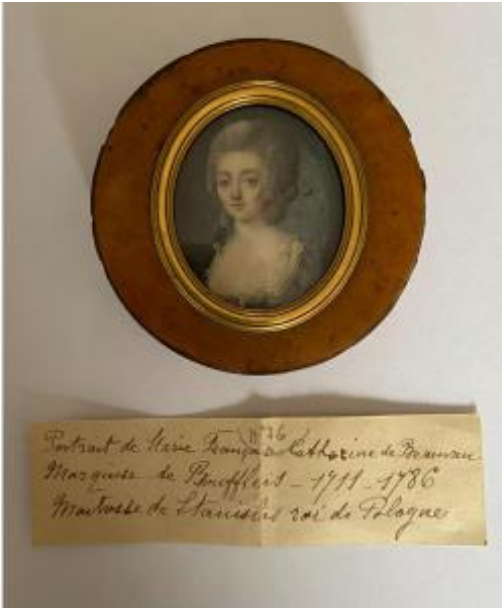 N° 26
Portrait de Marie Françoise Catherine de Beauvau
Marquise de Boufflers - 1711 - 1786
Maitresse de Stanislas roi de Pologne